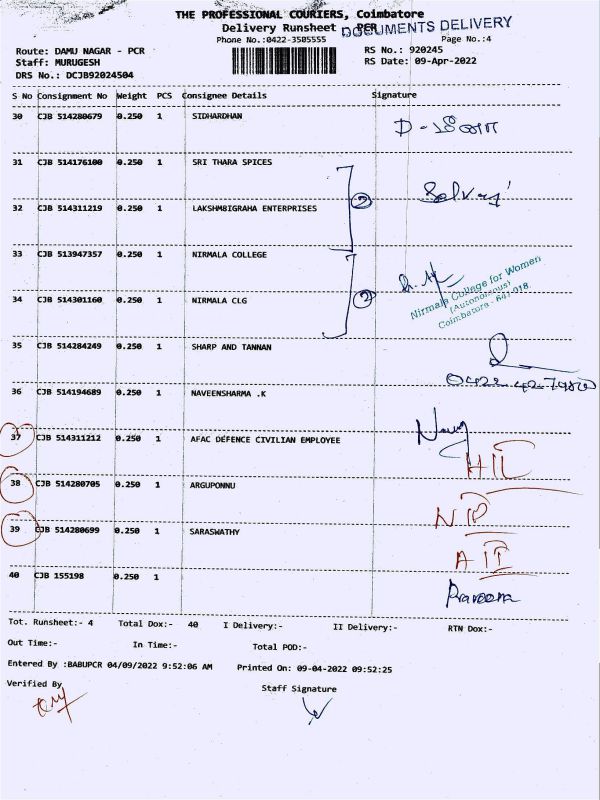 THE PROFESSIONAL COURIERS, Coimbatore
Delivery Runsheet - PCR
DOCUMENTS DELIVERY
Phone No.:0422-3505555 Page No.:4
Route: DAMU NAGAR - PCR RS No.: 920245
Staff: MURUGESH RS Date: 09-Apr-2022
DRS No.: DCJB92024504
S No Consignment No Weight PCS Consignee Details Signature
30 CJB 514280679 0.250 1 SIDHARDHAN
31 CJB 514176100 0.250 1 SRI THARA SPICES
2 Selvaj
32 CJB 514311219 0.250 1 LAKSHMBIGRAHA ENTERPRISES
33 CJB 513947357 0.250 1 NIRMALA COLLEGE
Nirmala College for Women
(Autonomous)
Coimbatore - 641 018.
34 CJB 514301160 0.250 1 NIRMALA CLG
2
35 CJB 514284249 0.250 1 SHARP AND TANNAN
36 CJB 514194689 0.250 1 NAVEENSHARMA .K
37 CJB 514311212 0.250 1 AFAC DEFENCE CIVILIAN EMPLOYEE
38 CJB 514280705 0.250 1 ARGUPONNU
39 CJB 514280699 0.250 1 SARASWATHY
40 CJB 155198 0.250 1 Praveena
Tot. Runsheet:- 4 Total Dox:- 40 I Delivery:- II Delivery:- RTN Dox:-
Out Time:- In Time:- Total POD:-
Entered By :BABUPCR 04/09/2022 9:52:06 AM Printed On: 09-04-2022 09:52:25
Verified By Staff Signature